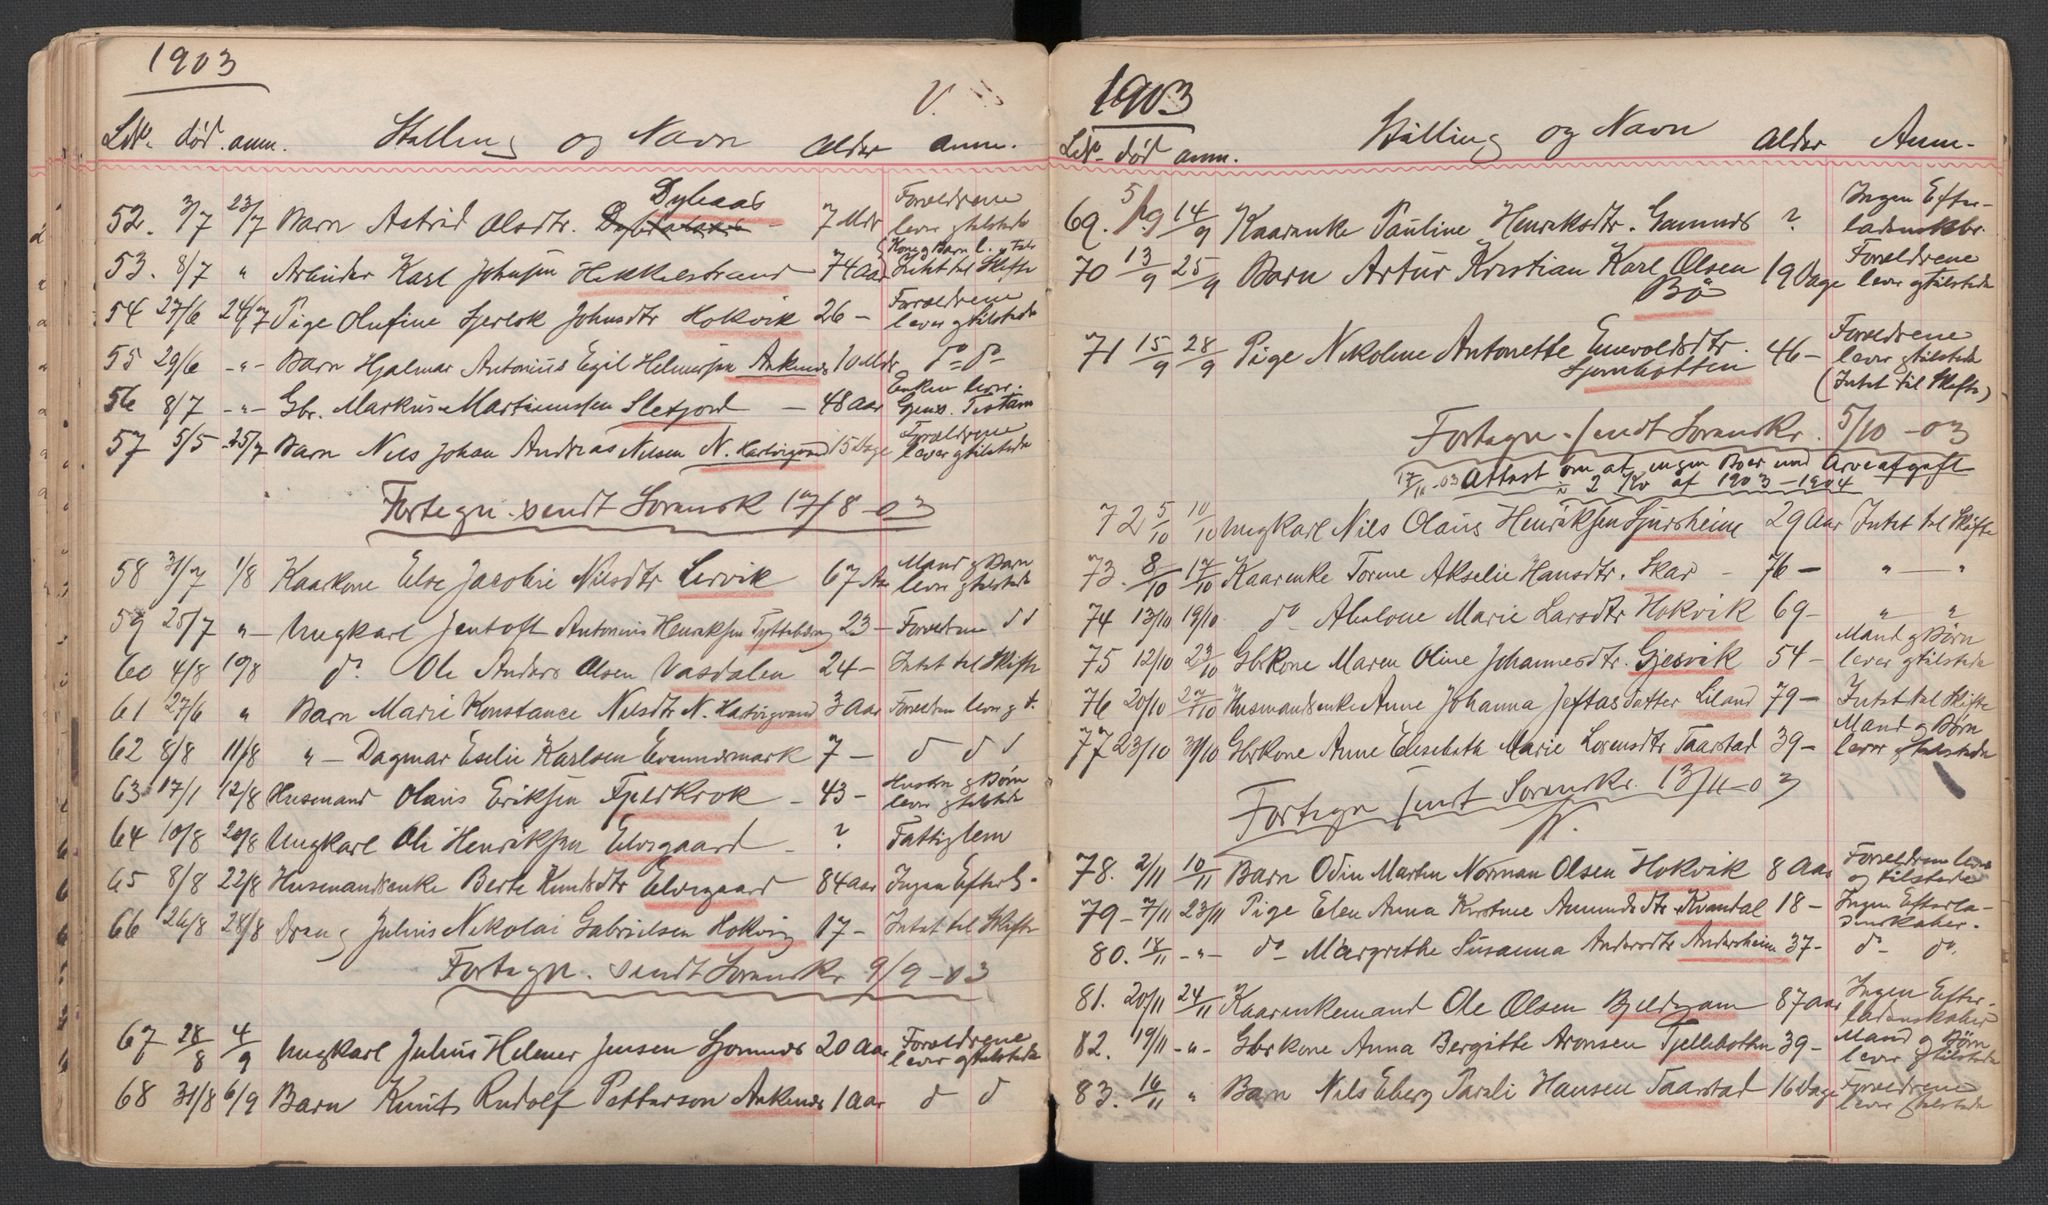 1903
V.
LNo. død. anm. Stilling og Navn Alder anm.
52. 3/7 23/7 Barn Astrid Olsdtr. Dybaas 7 Mdr Forældrene lever gtilstede
53. 8/7 " Arbeider Karl Johnsen Hekkelstrand 74 Aar Kone g Børn l. g tilst Intet til Skifte
54 27/6 24/7 Pige Olufine Johnsdtr Hokvik 26 - Forældrene lever gtilstede
55 29/6 -"- Barn Hjalmar Antonius Egil Helmersen Ankenes 10 Mdr do do
56 8/7 -"- Gbr. Markus Martinussen Sletjord - 48 Aar Enken lever. Gjens. Testam
57 5/5 25/7 Barn Nils Johan Andreas Nilsen N. Hartvigvand 15 Dage Forældrene lever gtilstede
Fortegn. sendt Sorensk 17/8 -03
58 31/7 1/8 Kaarkone Else Jacobie Nilsdtr Lervik 67 Aar Mand g Børn lever gtilstede
59 25/7 "- Ungkarl Jentoft Antonius Henriksen Tyttebærg 23 - Forældrene d d
60 4/8 10/8 do Ole Anders Olsen Vasdalen 24 - Intet til Skifte
61 27/6 " Barn Marie Konstance Nilsdtr N. Hartvigvand 3 Aar Forældren lever g t.
62 8/8 11/8 "- Dagmar Eselie Karlsen Evenesmark 7 - d d d
63 17/1 12/8 Husmand Olaus Eriksen Fjeldkrok - 43 - Hustru g Børn lever gtilstede
64 10/8 20/8 Ungkarl Ole Henriksen Elvegaard - ? Fattiglem
65 8/8 22/8 Husmandsenke Berte Knudsdtr Elvegaard 84 Aar Ingen Efterl.
66 26/8 28/8 Dreng Julius Nikolai Gabrielsen Hokvig 17 - Intet til Skifte
Fortegn. sendt Sorenskr 9/9 -03
67 28/8 4/9 Ungkarl Julius Helmer Jensen 20 Aar Forældrene lever gtilstede
68 31/8 6/9 Barn Knut Rudolf Petterson Ankenes 1 Aar d d
1903
LNo. død anm. Stilling og Navn Alder Anm.
69. 5/9 14/9 Kaarenke Pauline Henriksdtr. ? Ingen Efterladenskbr.
70 13/9 25/9 Barn Artur Kristian Karl Olsen Bö 19 Dage Forældrene lever gtilstede
71 15/9 28/9 Pige Nikoline Antonette Enevoldsdtr. Sjombotten 46 - Forældrene lever gtilstede (Intet til Skifte)
Fortegn. sendt Sorenskr. 5/10 -03
17/11-03 Attest om at ingen Boer med Arveafgift
2 Kv af 1903-1904
72 5/10 10/10 Ungkarl Nils Olaus Henriksen Sjursheim 29 Aar Intet til Skifte
73. 8/10 17/10 Kaarenke Torine Akselie Hansdtr. Skar - 76 - " - "
74 13/10 19/10 do Abelone Marie Larsdtr Hokvik 69 - " - "
75 12/10 23/10 Gbrkone Maren Oline Johannesdtr. Gjesvik 54 - Mand g Børn lever gtilstede
76 20/10 27/10 Husmandsenke Anne Johanna Jeftasdatter Liland 79 - Intet til Skifte
77 23/10 31/10 Gbrkone Anne Elisebeth Marie Lorensdtr Taarstad 39 - Mand g Børn lever gtilstede
Fortegn sendt Sorenskr. 13/11-03
78. 2/11 10/11 Barn Odin Martin Norman Olsen Hokvik 8 Aar Forældrene lever og tilstede
79 - 7/11 23/11 Pige Elen Anna Kirstine Amundsdtr Kvandal 18 - Ingen Efterladenskaber.
80. 18/11 -"- do Margrethe Susanna Andersdtr Andersheim 37 - do do.
81. 20/11 24/11 Kaarenkemand Ole Olsen Bjeldgam 87 Aar Ingen Efterladenskaber
82. 19/11 -"- Gbrkone Anna Bergitte Aronsen Tjellebotten 39 - Mand g Børn lever gtilstede
83. 16/11 " Barn Nils Eberg Pareli Hansen Taarstad 16 Dage Forældrene lever gtilstede